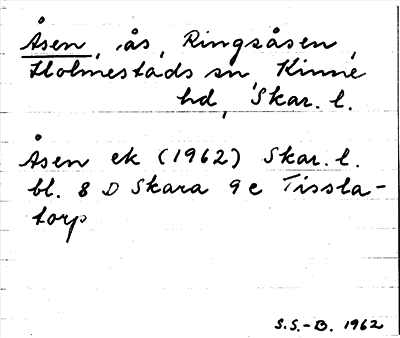 Åsen, ås, Ringsåsen,
Holmestads sn, Kinne
hd, Skar. l.
Åsen ek (1962) Skar. l.
bl. 8 D Skara 9 e Tissla-
torp
S.S.-B. 1962